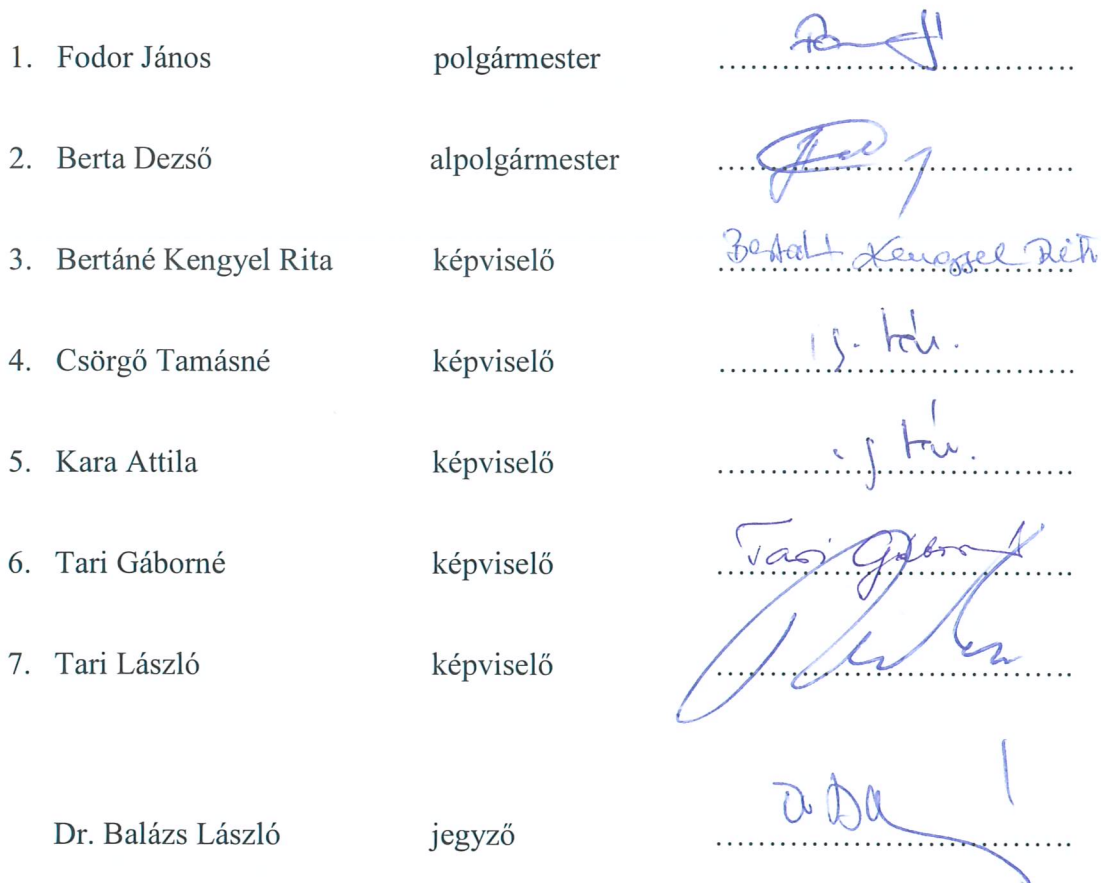 1. Fodor János polgármester ........................................
2. Berta Dezső alpolgármester ........................................
3. Bertáné Kengyel Rita képviselő Bertáné Kengyel Rita
4. Csörgő Tamásné képviselő ig. táv.
5. Kara Attila képviselő ig. táv.
6. Tari Gáborné képviselő Tari Gáborné
7. Tari László képviselő ........................................
Dr. Balázs László jegyző ........................................